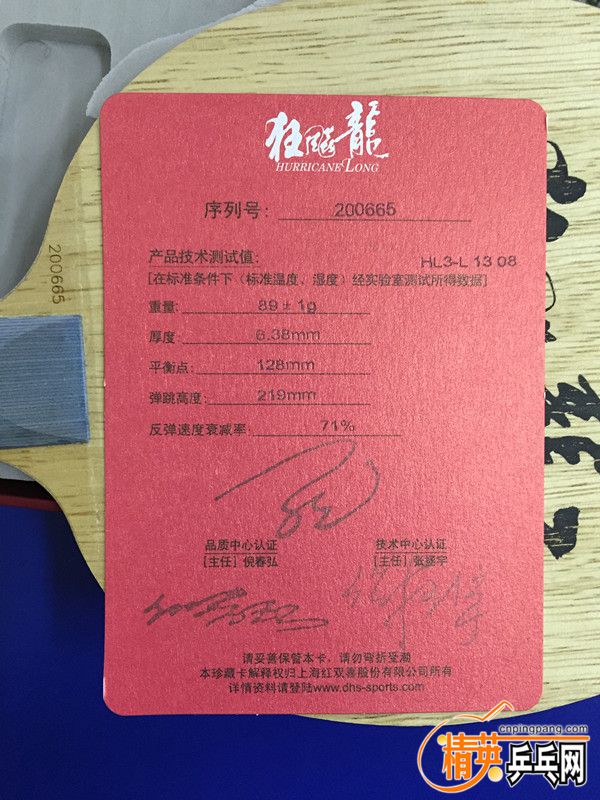 狂飚龍
HURRICANE LONG
序列号: 200665
产品技术测试值: HL3-L 13 08
[在标准条件下（标准温度、湿度）经实验室测试所得数据]
重量: 89±1g
厚度: 6.38mm
平衡点: 128mm
弹跳高度: 219mm
反弹速度衰减率: 71%
品质中心认证 技术中心认证
[主任] 倪春弘 [主任] 张逐宇
请妥善保管本卡，请勿弯折受潮
本珍藏卡解释权归上海红双喜股份有限公司所有
详情资料请登陆www.dhs-sports.com
200665
cnpingpang.com
精英乒乓网